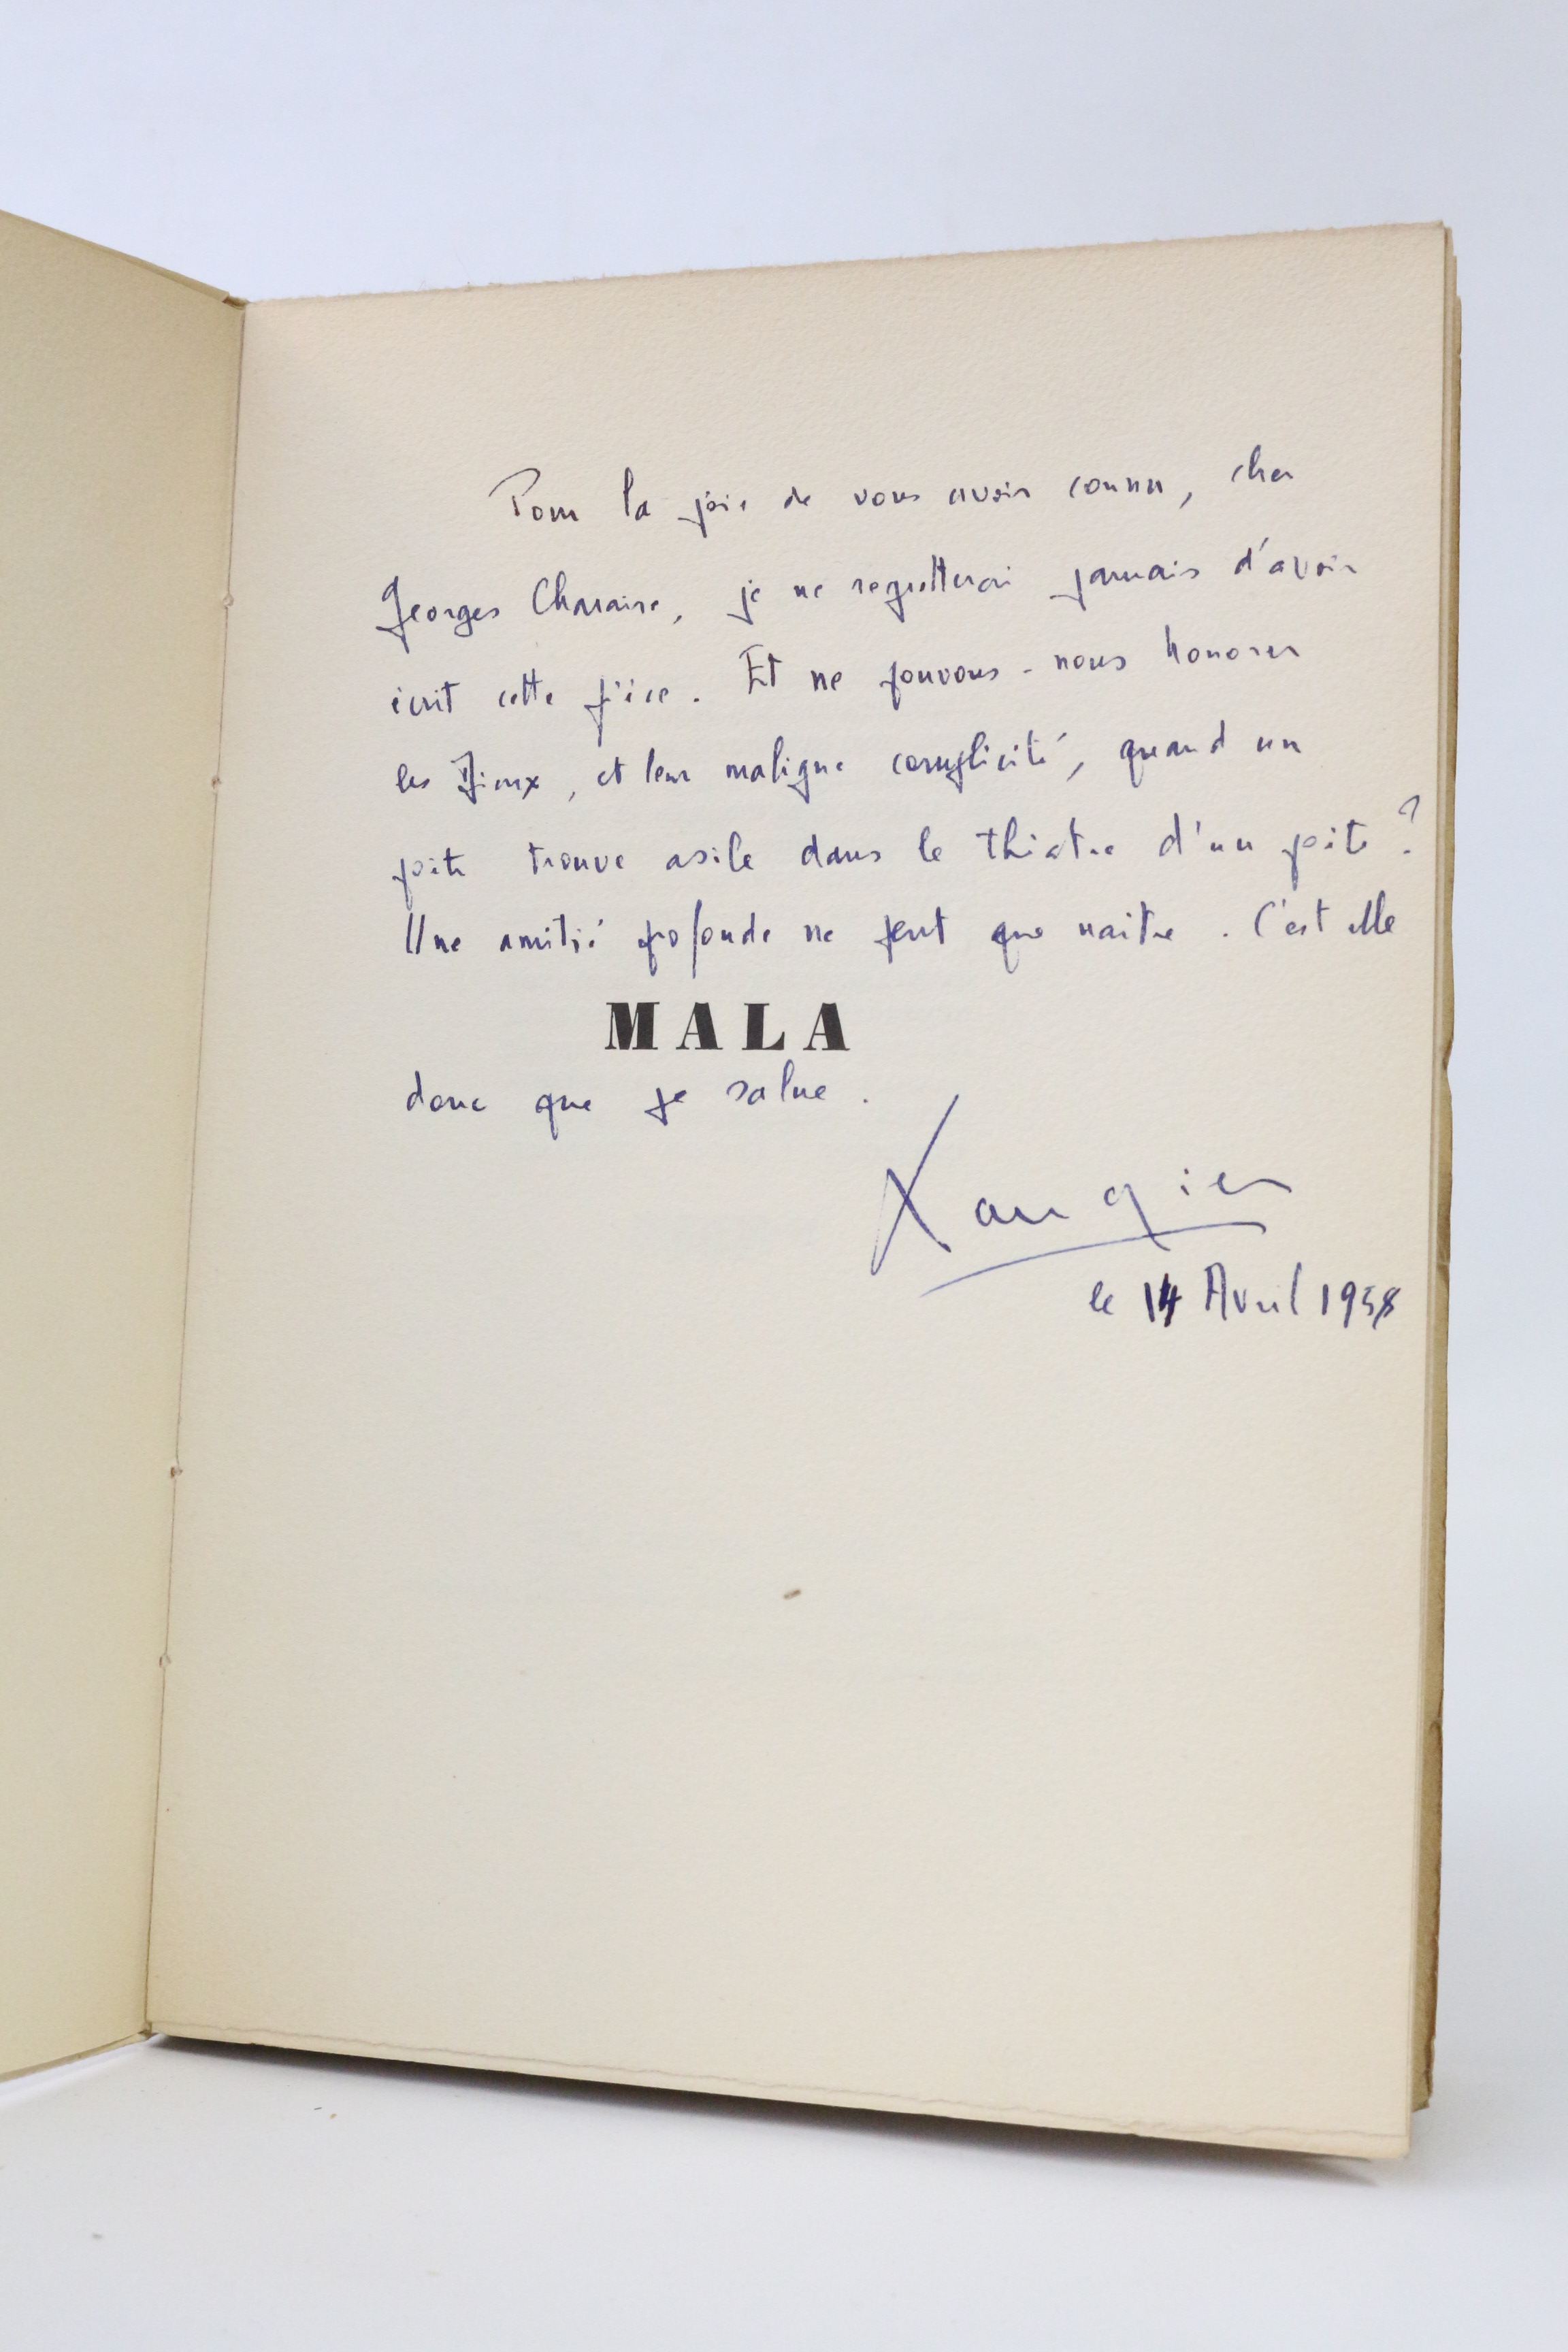 Pour la joie de vous avoir connu, cher
Georges Charaire, je ne regretterai jamais d'avoir
écrit cette pièce. Et ne pouvons-nous honorer
les Dieux, et leur maligne complicité, quand un
poète trouve asile dans le théâtre d'un poète ?
Une amitié profonde ne peut que naître. C'est elle
MALA
donc que je salue.
le 14 Avril 1958